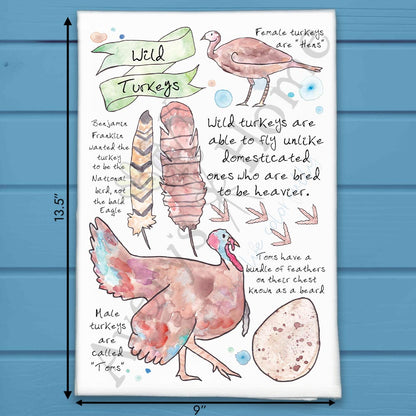 Wild
Turkeys
Female turkeys
are "Hens"
Benjamin
Franklin
wanted the
turkey
to be the
National
bird, not
the bald
Eagle
Wild turkeys are
able to fly unlike
domesticated
ones who are bred
to be heavier.
Toms have a
bundle of feathers
on their chest
known as a beard
Male
turkeys
are
called
"Toms"
13.5"
9"